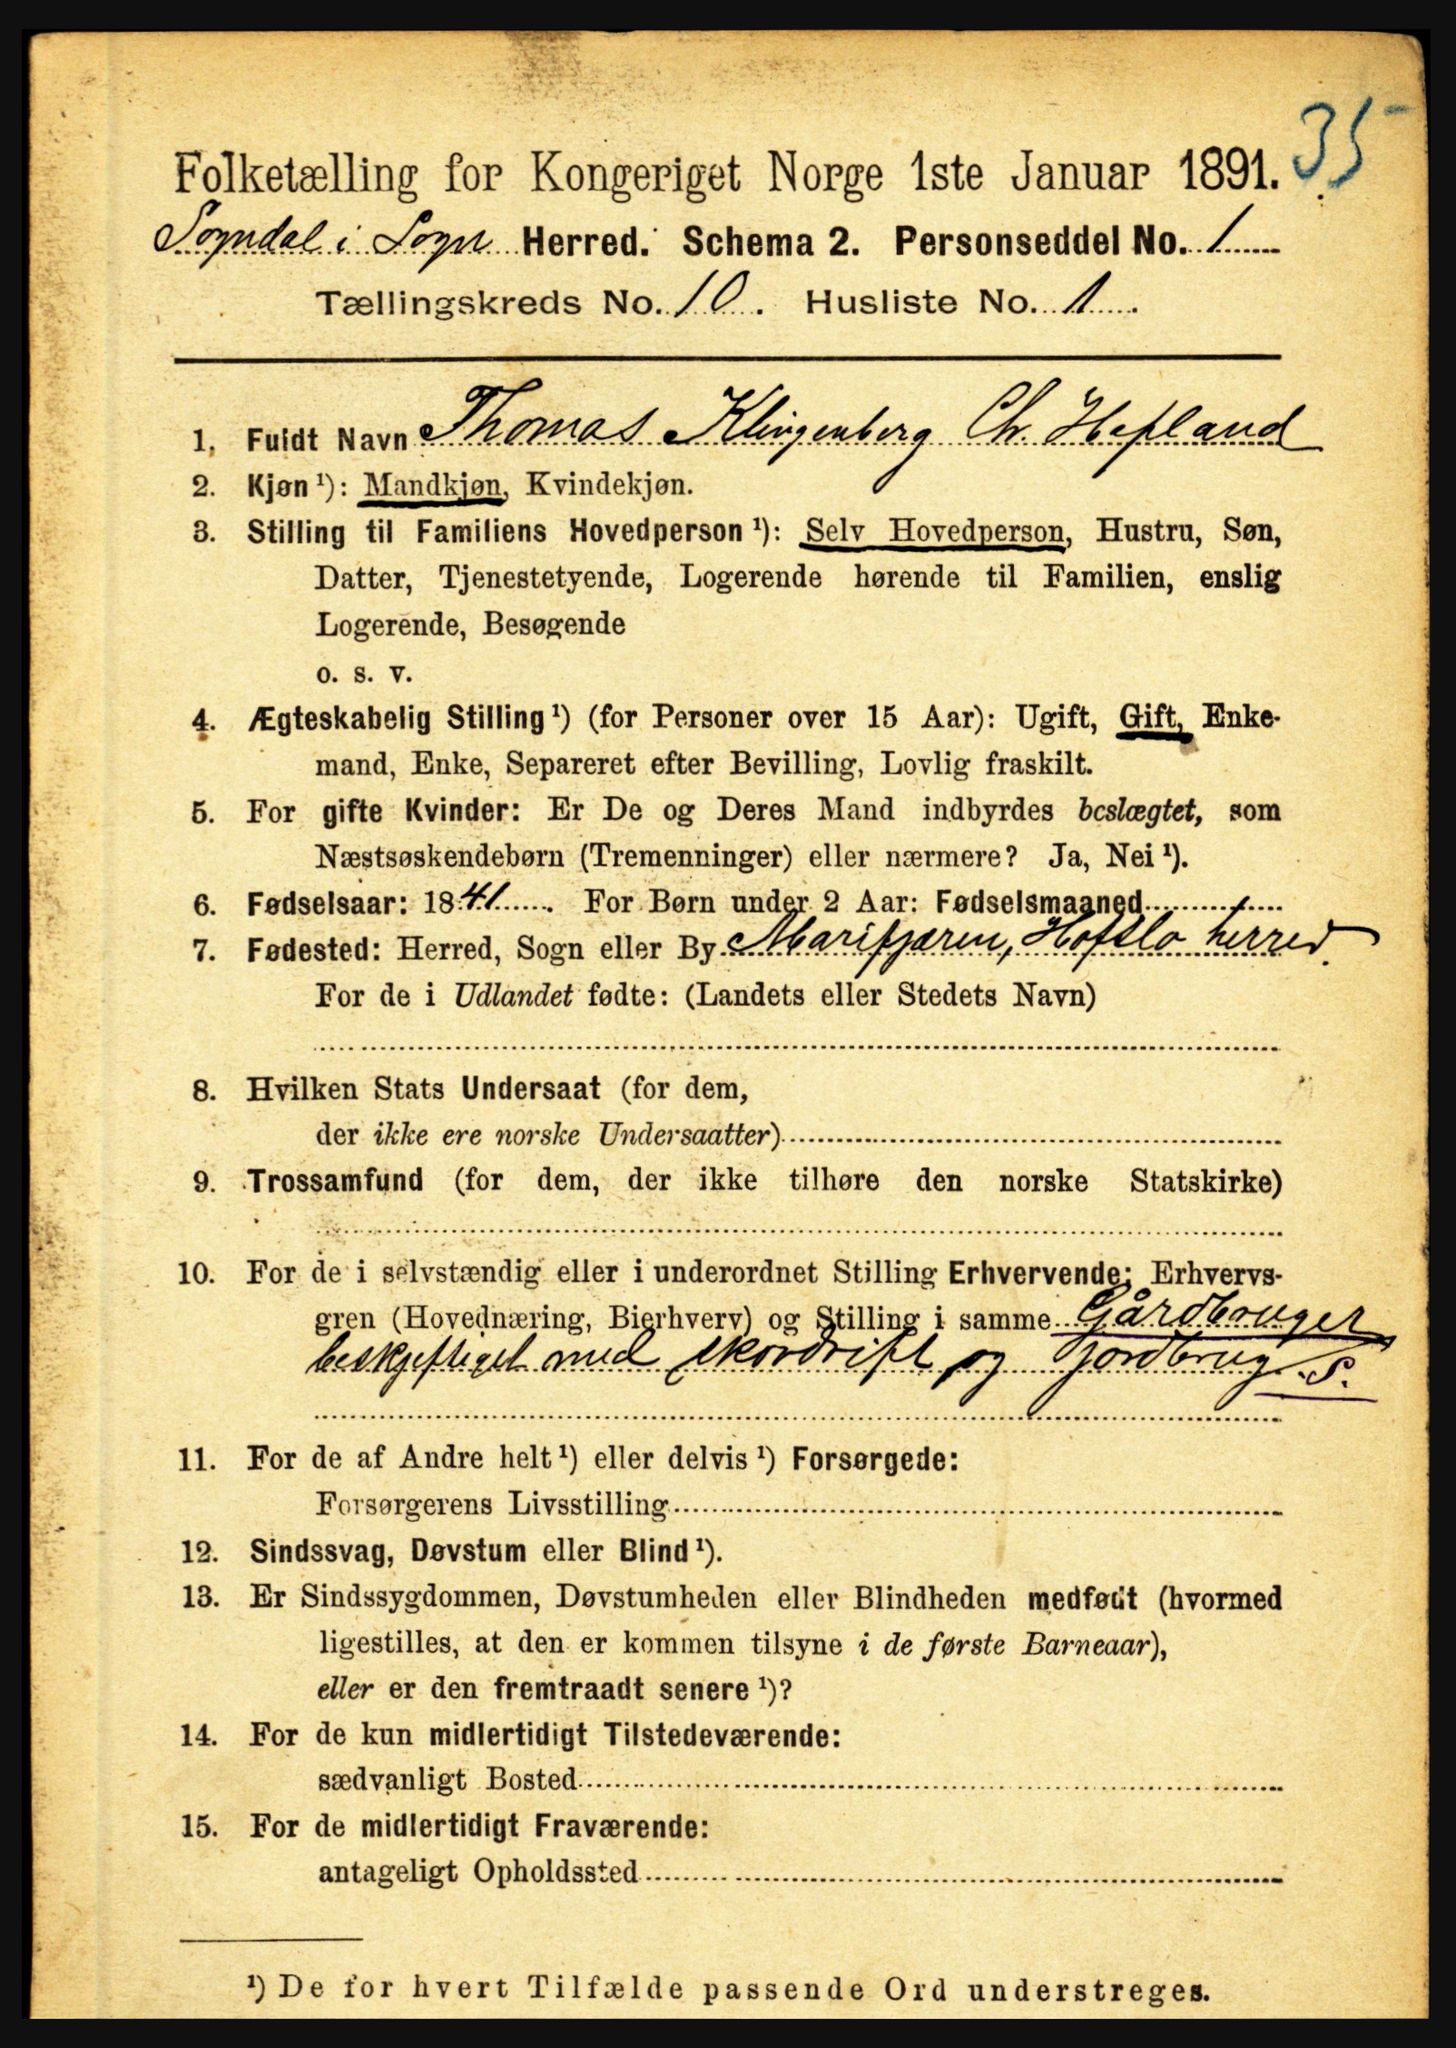 35
Folketælling for Kongeriget Norge 1ste Januar 1891.
Sogndal i Sogn Herred. Schema 2. Personseddel No. 1
Tællingskreds No. 10. Husliste No. 1.
1. Fuldt Navn Thomas Klingenberg Chr. Hefland
2. Kjøn ¹): Mandkjøn, Kvindekjøn.
3. Stilling til Familiens Hovedperson ¹): Selv Hovedperson, Hustru, Søn,
Datter, Tjenestetyende, Logerende hørende til Familien, enslig
Logerende, Besøgende
o. s. v.
4. Ægteskabelig Stilling ¹) (for Personer over 15 Aar): Ugift, Gift, Enke-
mand, Enke, Separeret efter Bevilling, Lovlig fraskilt.
5. For gifte Kvinder: Er De og Deres Mand indbyrdes beslægtet, som
Næstsøskendebørn (Tremenninger) eller nærmere? Ja, Nei ¹).
6. Fødselsaar: 1841. For Børn under 2 Aar: Fødselsmaaned
7. Fødested: Herred, Sogn eller By Marifjæren, Hafslo herred.
For de i Udlandet fødte: (Landets eller Stedets Navn)
8. Hvilken Stats Undersaat (for dem,
der ikke ere norske Undersaatter)
9. Trossamfund (for dem, der ikke tilhøre den norske Statskirke)
10. For de i selvstændig eller i underordnet Stilling Erhvervende: Erhvervs-
gren (Hovednæring, Bierhverv) og Stilling i samme Gårdbruger
beskjeftiget med skovdrift og jordbrug. S.
11. For de af Andre helt ¹) eller delvis ¹) Forsørgede:
Forsørgerens Livsstilling
12. Sindssvag, Døvstum eller Blind ¹).
13. Er Sindssygdommen, Døvstumheden eller Blindheden medfødt (hvormed
ligestilles, at den er kommen tilsyne i de første Barneaar),
eller er den fremtraadt senere ¹)?
14. For de kun midlertidigt Tilstedeværende:
sædvanligt Bosted
15. For de midlertidigt Fraværende:
antageligt Opholdssted
¹) De for hvert Tilfælde passende Ord understreges.